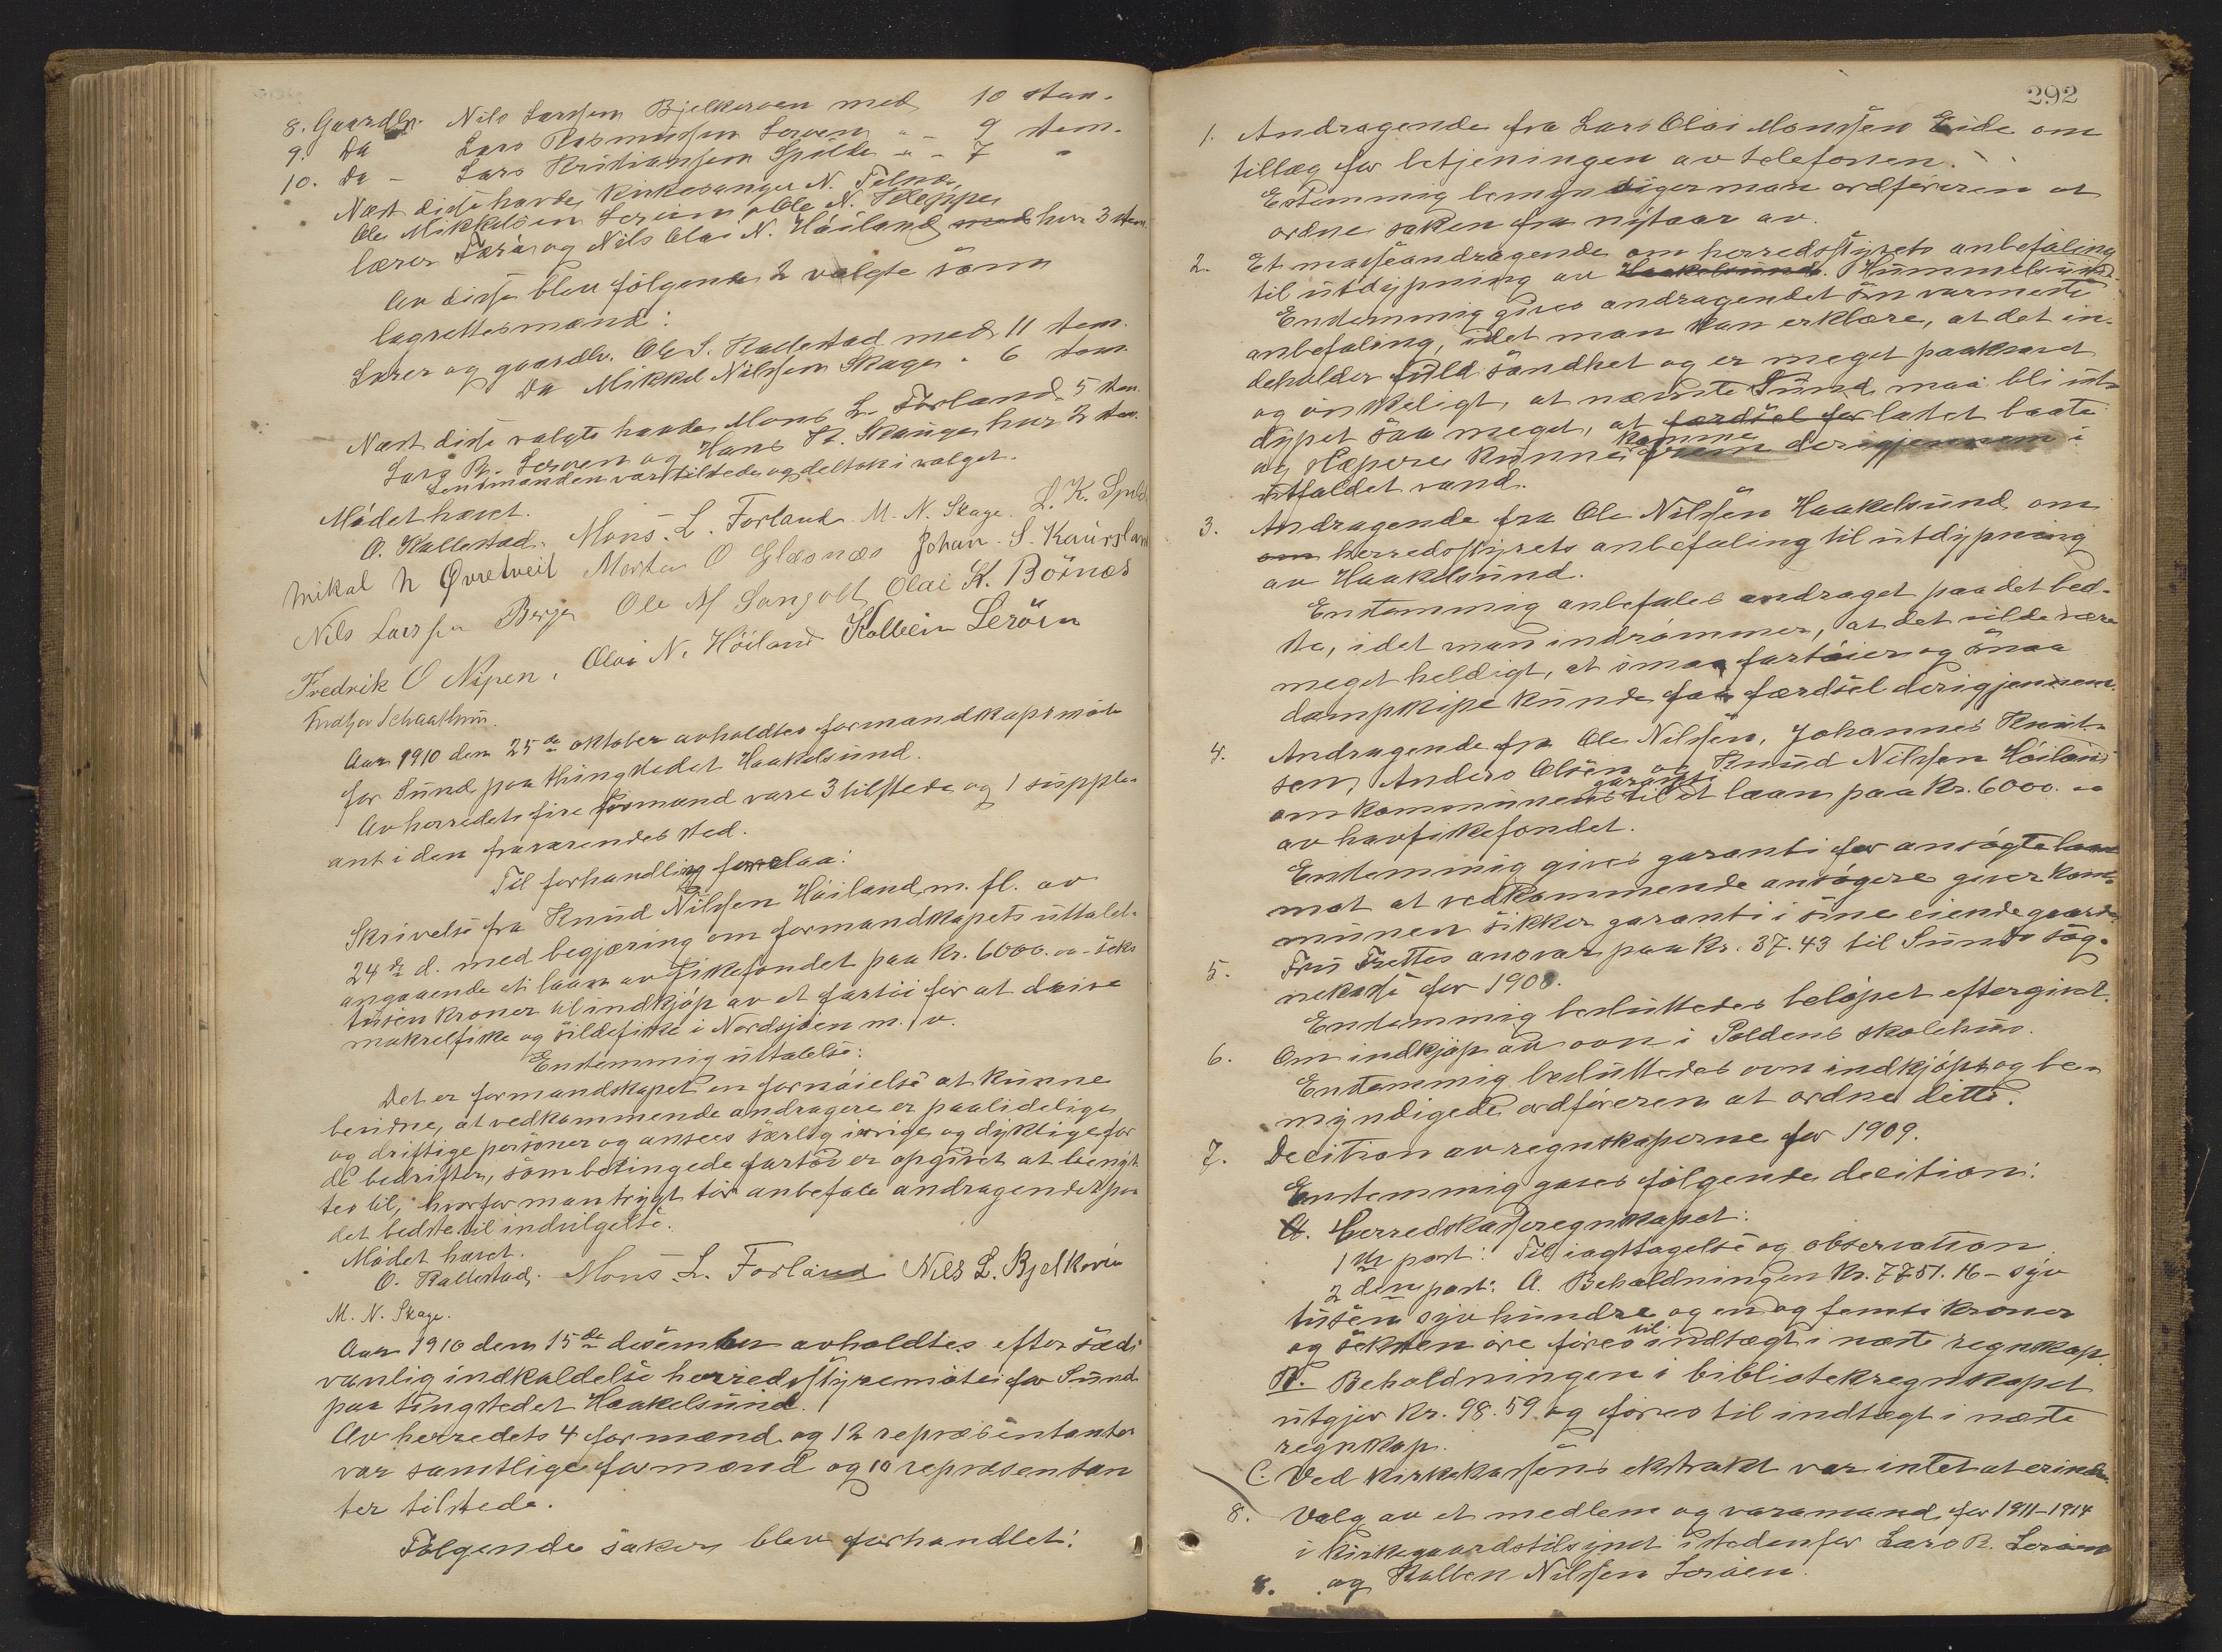 8. Gaardbr. Nils Larssen Bjelkeroen med 10 stem.
9. Da Lars Rasmussen Leroen " - 9 stem.
10. Da - Lars Kristiansen Spilde " - 7 "
Næst disse havde kirkesanger N. Telnæs,
Ole Mikkelsen Leröen, Ole N. Kleppe,
lærer Færö og Nils Olai N. Höiland med hver 3 stem.
Av disse blev følgende 2 valgte som
lagrettesmænd:
Lærer og gaardbr. Ole S. Kallestad med 11 stem.
Da Mikkel Nilssen Skage " 6 stem.
Næst disse valgte havde Mons L. Forland 5 stem.
Lars R. Leroen og Hans K. Skauge hver 2 stem.
Lensmanden var tilstede og deltok i valget.
Mödet hævet.
O. Kallestad. Mons. L. Forland M. N. Skage. L. K. Spilde
Mikal N Øvretveit Morten O Glæsnæs Johan S. Kaursland
Nils Larssen Berge Ole M Sangolt Olai K. Börnes
Fredrik O Nipen. Olai N. Höiland Kolbein Leröen
Schaathun.
Aar 1910 den 25de oktober avholdtes formandskapsmöte
for Sund paa thingstedet Haakelsund.
Av herredets fire formænd vare 3 tilstede og 1 supple-
ant i den fraværendes sted.
Til forhandling forelaa:
Skrivelse fra Knud Nilssen Höiland m. fl. av
24de d. med begjæring om formandskapets uttalel-
angaaende et laan av Fiskefondet paa kr. 6000.00 - seks
tusen kroner til indkjöp av et fartöi for at drive
makrelfiske og sildefiske i Nordsjöen m. v.
Enstemmig uttalelse:
Det er formandskapet en fornöielse at kunne
bevidne, at vedkommende andragere er paalidelige
og driftige personer og ansees særlig ivrige og dyktige for
de bedrifter, som betingede fartöi er opgivet at benyt
tes til, hvorfor man trygt tör anbefale andragendet paa
det bedste til indvilgelse.
Mödet hævet.
O. Kallestad. Mons L. Forland Nils L. Bjelkeröen
M. N. Skage.
Aar 1910 den 15de desember avholdtes efter sæd-
vanlig indkaldelse herredsstyremöte for Sund
paa tingstedet Haakelsund.
Av herredets 4 formænd og 12 repræsentanter
var samtlige formænd og 10 repræsentan
ter tilstede.
Følgende saker blev forhandlet:
292
1. Andragende fra Lars Olai Monssen Eide om
tillæg for betjeningen av telefonen.
Enstemmig bemyndiger man ordføreren at
ordne saken fra nytaar av.
2. Et masseandragende om herredsstyrets anbefaling
til utdypning av Haakelsund. Hummelsund.
Enstemmig gives andragendet sin varmeste
anbefaling, idet man kan erklære, at det in-
deholder fuld sandhet og er meget paakrævet
og önskeligt, at nævnte Sund maa bli ut-
dypet saa meget, at færdsel for lastet baate
og slæpere kunne komme frem derigjennem i
utfaldet vand.
3. Andragende fra Ole Nilssen Haakelsund om
om herredsstyrets anbefaling til utdypning
av Haakelsund.
Enstemmig anbefales andraget paa det bed-
ste, idet man indrömmer, at det vilde være
meget heldigt, at smaa fartöier og smaa
dampskipe kunde faa færdsel derigjennem.
4. Andragende fra Ole Nilssen, Johannes Knut-
sen, Anders Olsen og Knud Nilssen Höiland
om kommunens garanti til et laan paa kr. 6000.00
av havfiskefondet.
Enstemmig gives garanti for ansögte laan
mot at vedkommende ansögere giver kom-
munen sikker garanti i sine eiende gaarde.
5. Fru Frettes ansvar paa kr. 37.43 til Sunds sog-
nekasse for 1908.
Enstemmig besluttedes belöpet eftergivet.
6. Om indkjöp av ovn i Toldens skolehus.
Enstemmig besluttedes ovn indkjöpt og be-
myndigede ordføreren at ordne dette.
7. Decition av regnskaperne for 1909.
Enstemmig gaves følgende decition:
A. Herredskasseregnskapet:
1ste post: Til iagttagelse og observation.
2den post: A. Beholdningen kr. 7751.16 - syv
tusen syv hundre og en og femti kroner
og seksten öre föres til indtægt i næste regnskap.
B. Beholdningen i bibliotekregnskapet
utgjör kr. 98.59 og föres til indtægt i næste
regnskap.
C. Ved kirkekassens ekstrakt var intet at erindre.
8. Valg av et medlem og varamand for 1911-1914
i kirkegaardstilsynet istedenfor Lars R. Leröen
8. og Kolben Nilssen Leröen.